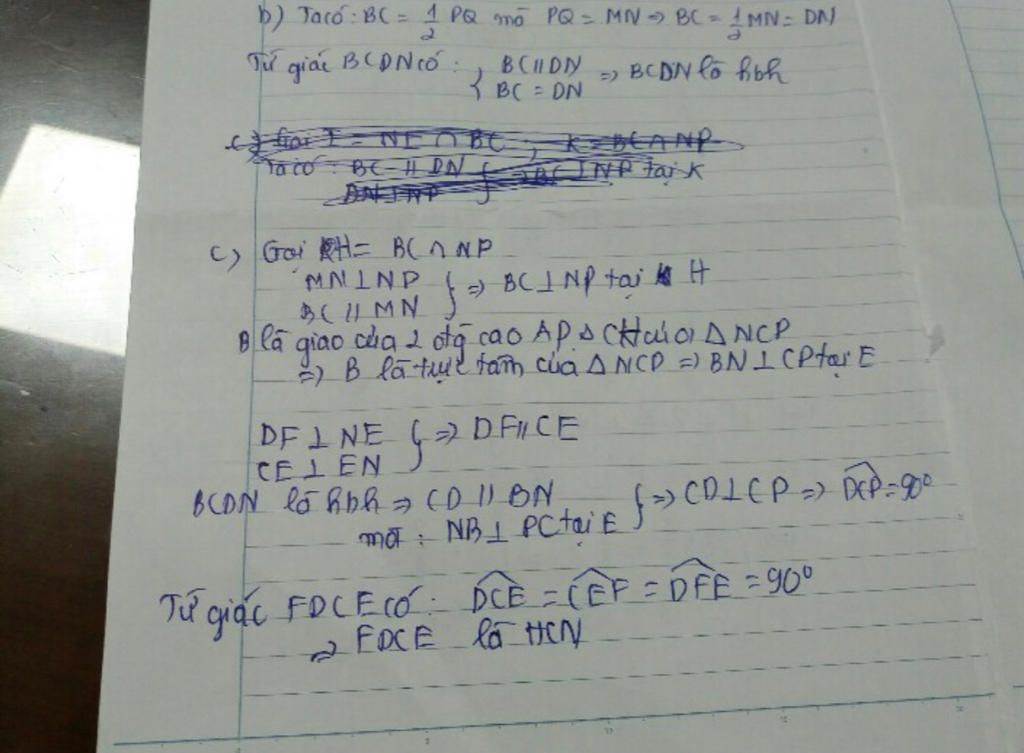 b) Ta có: BC = 1/2 PQ mà PQ = MN => BC = 1/2 MN = DN
Tứ giác BCDN có: { BC // DN
BC = DN => BCDN là hbh
c) Gọi I = NE ∩ BC, K = BC ∩ NP
Ta có: BC // DN
DN ⊥ NP } => BC ⊥ NP tại K
c) Gọi H = BC ∩ NP
MN ⊥ NP
BC // MN } => BC ⊥ NP tại H
B là giao của 2 đg cao AP CH của Δ NCP
=> B là trực tâm của Δ NCP => BN ⊥ CP tại E
DF ⊥ NE
CE ⊥ EN } => DF // CE
BCDN là hbh => CD // BN
mà: NB ⊥ PC tại E } => CD ⊥ CP => DCP = 90°
Tứ giác FDCE có: DCE = CEF = DFE = 90°
=> FDCE là HCN